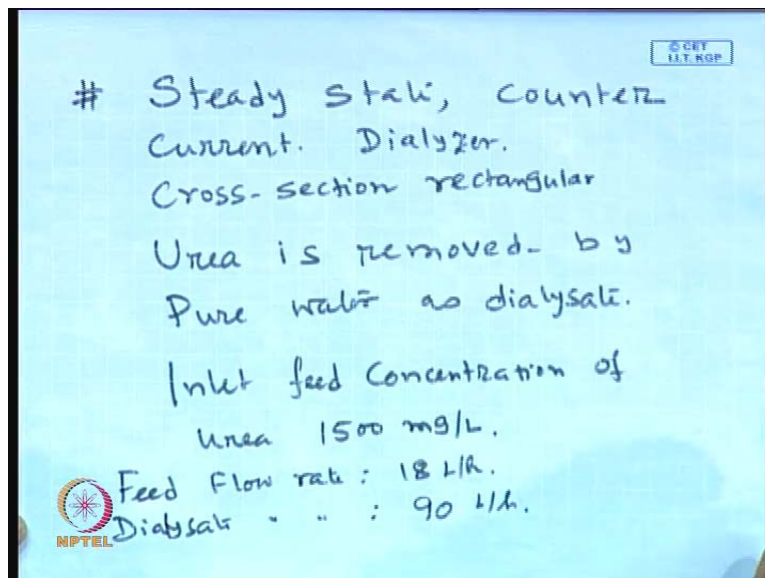 © CET
I.I.T. KGP
# Steady State, Counter
Current. Dialyzer.
Cross-section rectangular
Urea is removed by
Pure water as dialysate.
Inlet feed Concentration of
urea 1500 mg/L.
Feed Flow rate : 18 L/h.
Dialysate " " : 90 L/h.
NPTEL